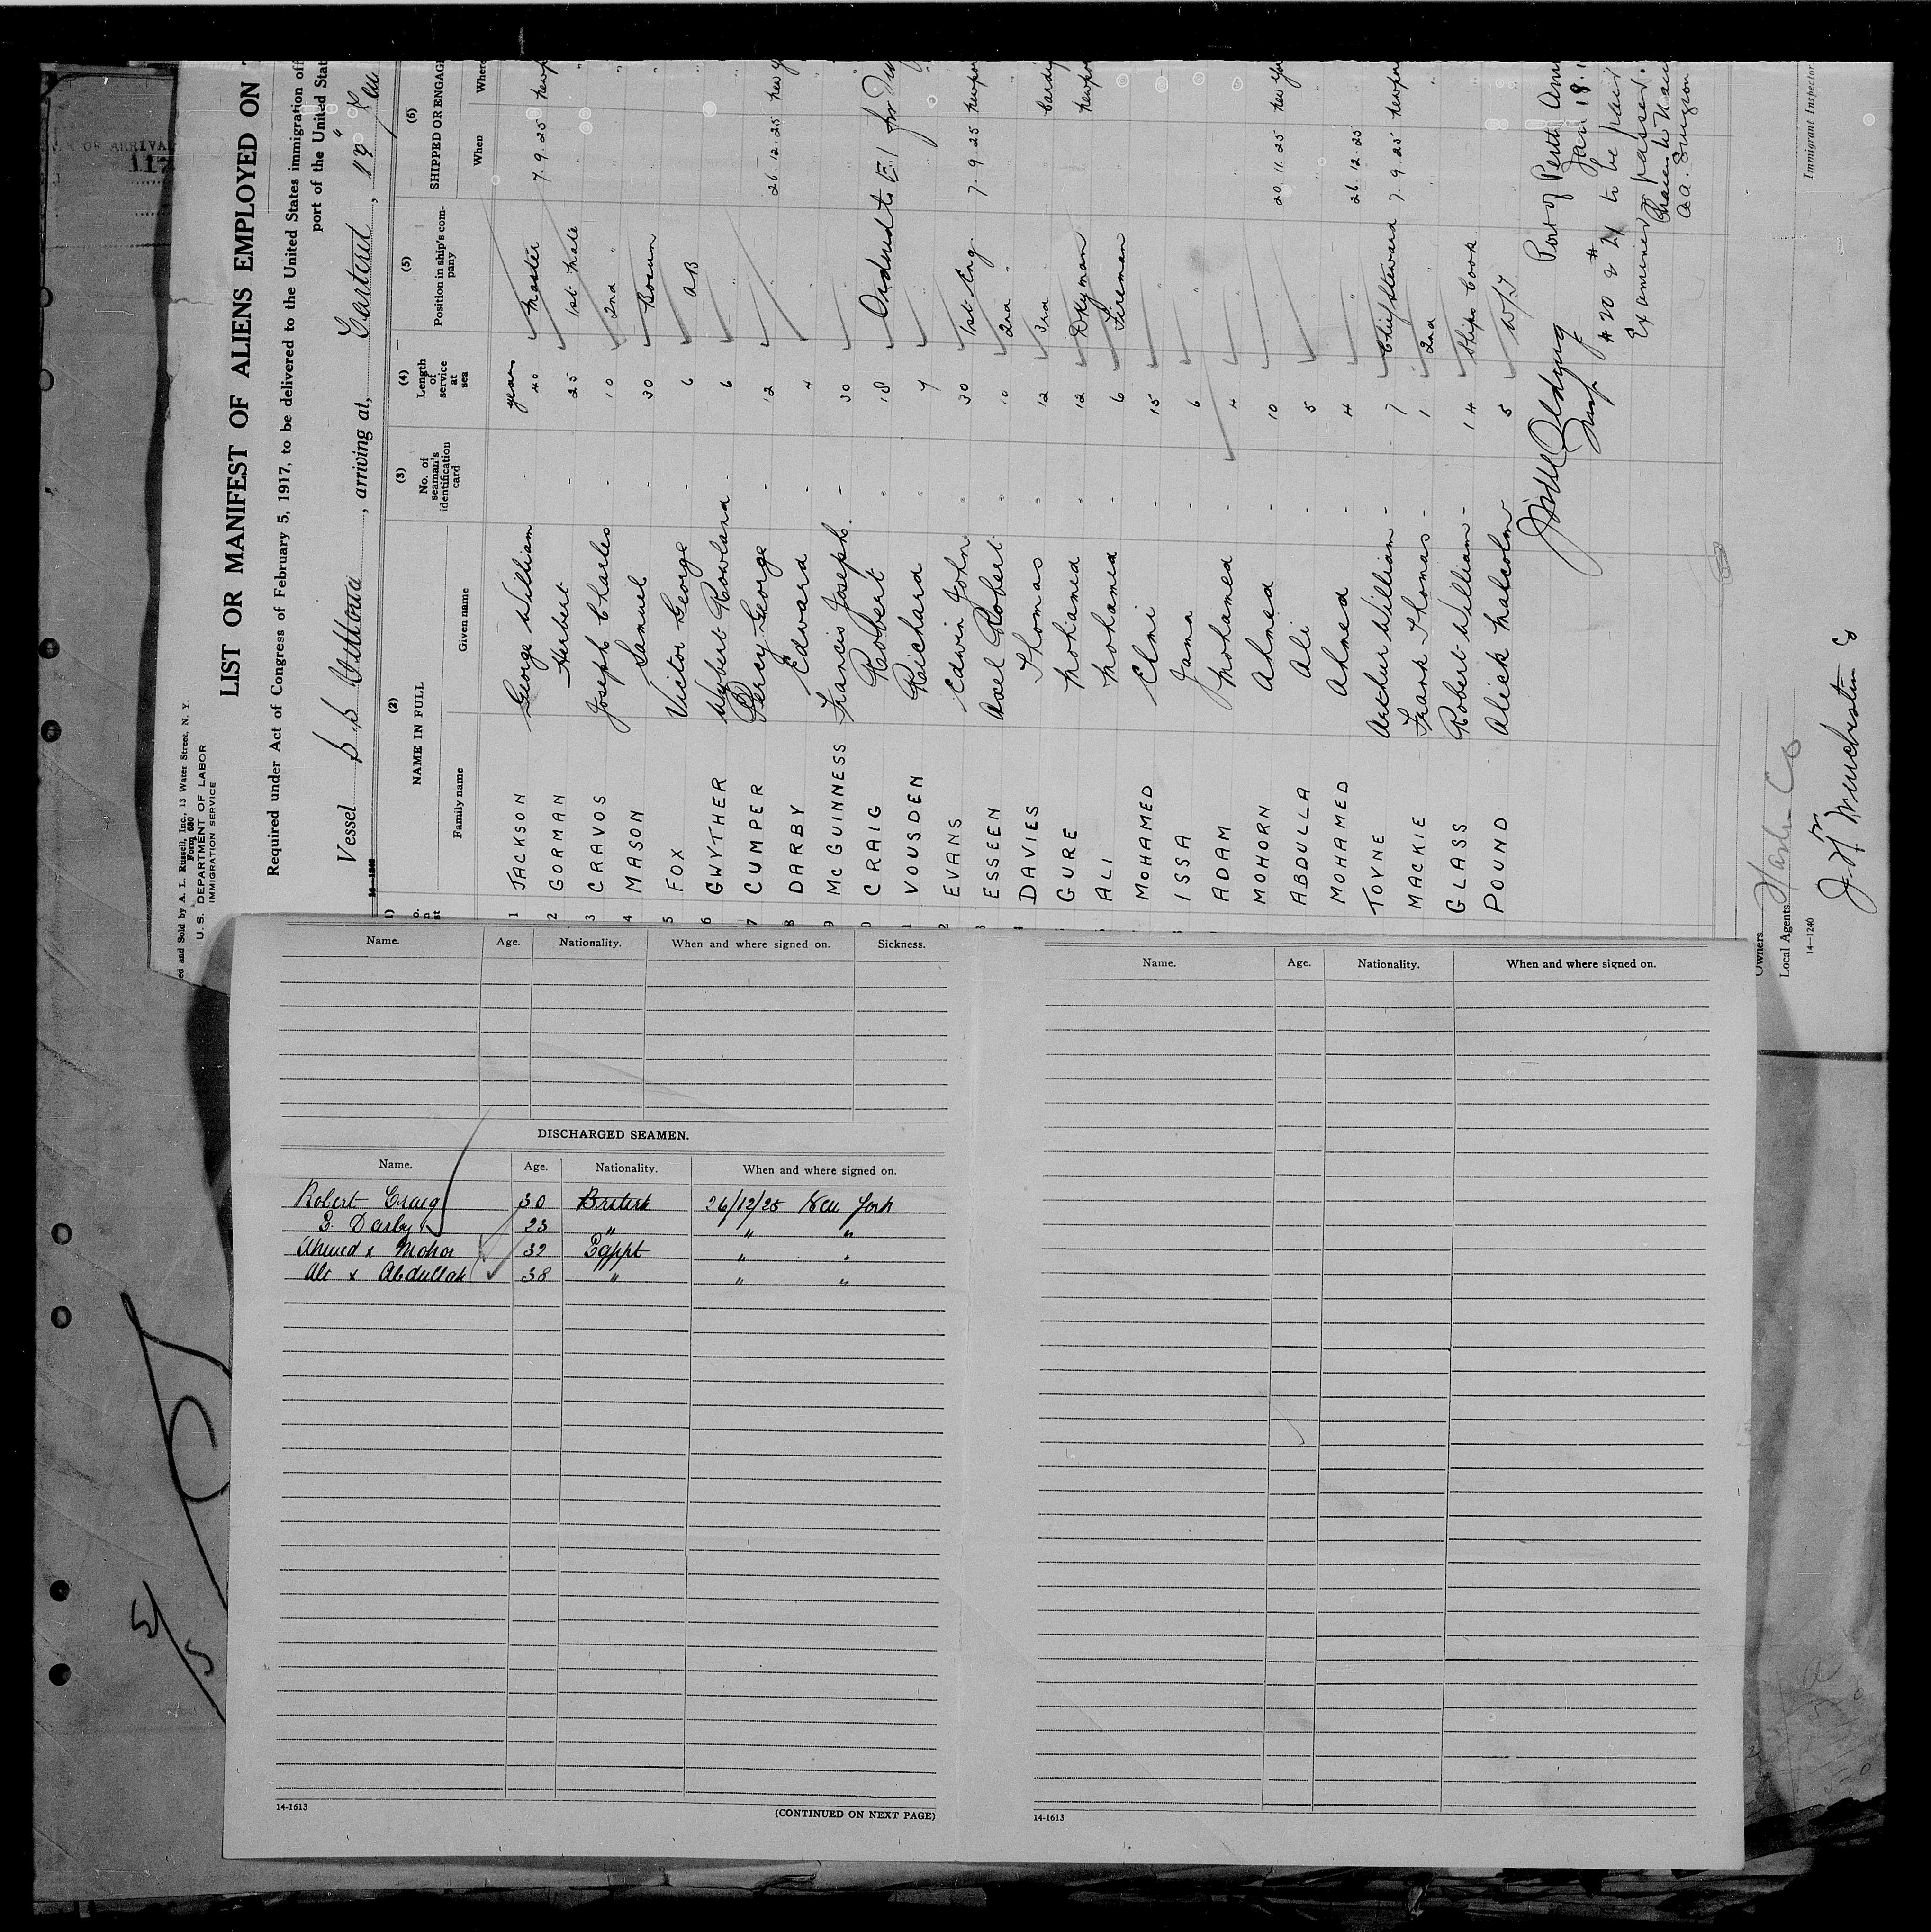 OF ARRIVAL
117
ed and Sold by A. L. Russell, Inc., 13 Water Street, N. Y.
Form 680
U. S. DEPARTMENT OF LABOR
IMMIGRATION SERVICE
LIST OR MANIFEST OF ALIENS EMPLOYED ON
Required under Act of Congress of February 5, 1917, to be delivered to the United States immigration off
port of the United Stat
Vessel S.S. , arriving at, Carteret , 19
(2) (3) (4) (5) (6)
NAME IN FULL No. of seaman's identification card Length of service at sea Position in ship's company SHIPPED OR ENGAGE
Family name Given name When Where
1 JACKSON George William - years 40 Master 7.9.25 Newp
2 GORMAN Herbert - 25 1st Mate " "
3 CRAVOS Joseph Charles - 10 2nd " " "
4 MASON Samuel - 30 Bosun " "
5 FOX Victor George - 6 AB " "
6 GWYTHER Rowland - 6 " " "
7 CUMPER Percy George - 12 " "
8 DARBY Edward - 4 26.12.25 New Y
9 McGUINNESS Francis Joseph - 30 "
0 CRAIG Robert 18 Ordered to E.I. for
1 VOUSDEN Richard 7 "
2 EVANS Edwin John 30 1st Eng. 7.9.25 Newpor
3 ESSEEN Axel Robert 10 2nd " "
4 DAVIES Thomas 12 3rd " Cardi
GURE Mohamed 12 Dkyman Newpor
ALI Mohamed - 6 Fireman
MOHAMED Elmi - 15 "
ISSA Jama - 6 "
ADAM Mohamed - 4 "
MOHORN Ahmed - 10 20.11.25 New Yo
ABDULLA Ali - 5 "
MOHAMED Ahmed - 4 " 26.12.25
TOYNE Arthur William - 7 Chief Steward 7.9.25 Newpor
MACKIE Frank Thomas - 1 2nd " " "
GLASS Robert William - 14 Ships Cook
POUND Alick Malcolm 5 W/T
Port of Perth Am
Jan 18.1
# 20 & # 21 to be paid
Examined & passed.
a.a. Surgeon
Immigrant Inspector.
Owners
Local Agents
14—1240
Name. Age. Nationality. When and where signed on. Sickness.
DISCHARGED SEAMEN.
Name. Age. Nationality. When and where signed on.
Robert Craig 30 British 26/12/25 New York
E. Darby 23 " " "
Ahmed x Mohor 32 Egypt " "
Ali x Abdullah 38 " " "
14-1613 (CONTINUED ON NEXT PAGE)
Name. Age. Nationality. When and where signed on.
14-1613